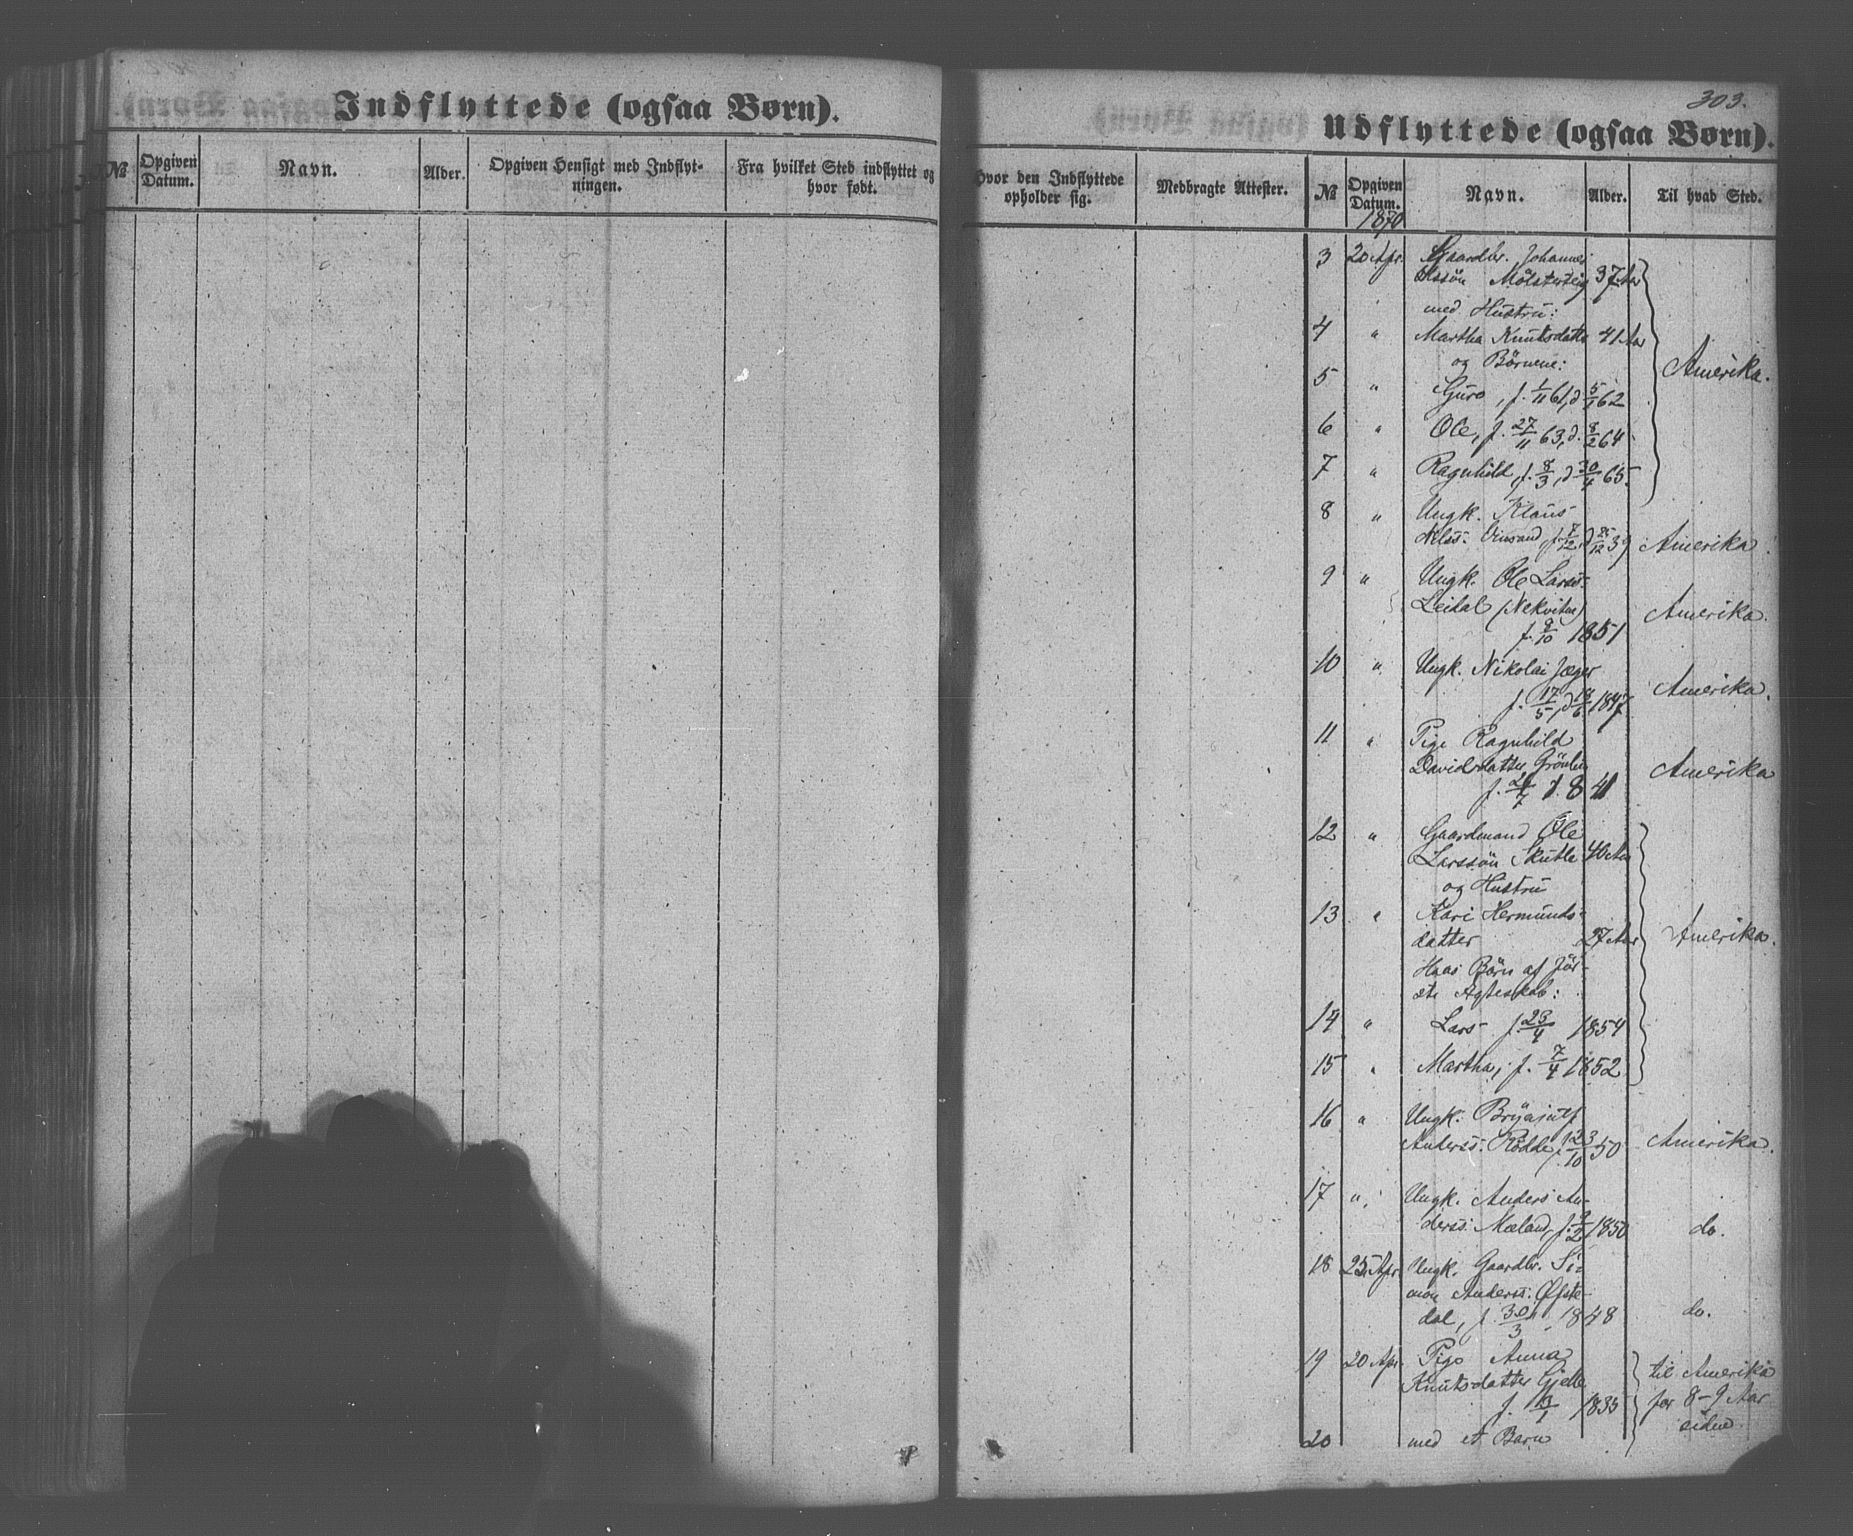 Indflyttede (ogsaa Børn).
№ Opgiven Datum. Navn. Alder. Opgiven Hensigt med Indflyt-
ningen. Fra hvilket Sted indflyttet og
hvor født.
303.
Udflyttede (ogsaa Børn).
Hvor den Indflyttede
opholder sig. Medbragte Attester. № Opgiven Datum. Navn. Alder. Til hvad Sted.
1870
3 20 Apr. Gaardbr. Johannes
Olssön Mölsterteig 37 Aar
med Hustru:
4 " Martha Knutsdatter 41 Aar
og Börnene: Amerika.
5 " Guro, f. 1/11 61, d 5/1 62
6 " Ole, f. 27/11 63, d. 8/2 64
7 " Ragnhild, f. 8/3, d 30/4 65.
8 " Ungk. Klaus
Nilss. f. 7/12, d 25/12 39 Amerika.
9 " Ungk. Ole Larss.
Leidal (Nekvitne) Amerika.
f. 9/10 1851
10 " Ungk. Nikolai Jæger
f. 17/5, d 18/6 1847 Amerika.
11 " Pige Ragnhild
Davidsdatter Grönlien Amerika
f. /7 1841
12 " Gaardmand Ole
Larssön Skutle 40 Aar
og Hustru
13 " Kari Hermunds-
datter 27 Aar Amerika.
Hans Börn af för-
ste Ægteskab:
14 " Lars f. 23/4 1854
15 " Martha, f. 7/4 1852
16 " Ungk. Brynjulf
Anderss. Rödde, f. 23/10 50 Amerika.
17 " Ungk. Anders An-
derss. Mæland, f. 9/2 1850 do.
18 25 Apr. Ungk. Gaardbr. Si-
mon Anderss. Ofste-
dal, f. 30/3 1848 do.
19 20 Apr. Pige Anna til Amerika
Knutsdatter Gjelle for 8-9 Aar
f. 13/1 1835 siden.
20 med et Barn